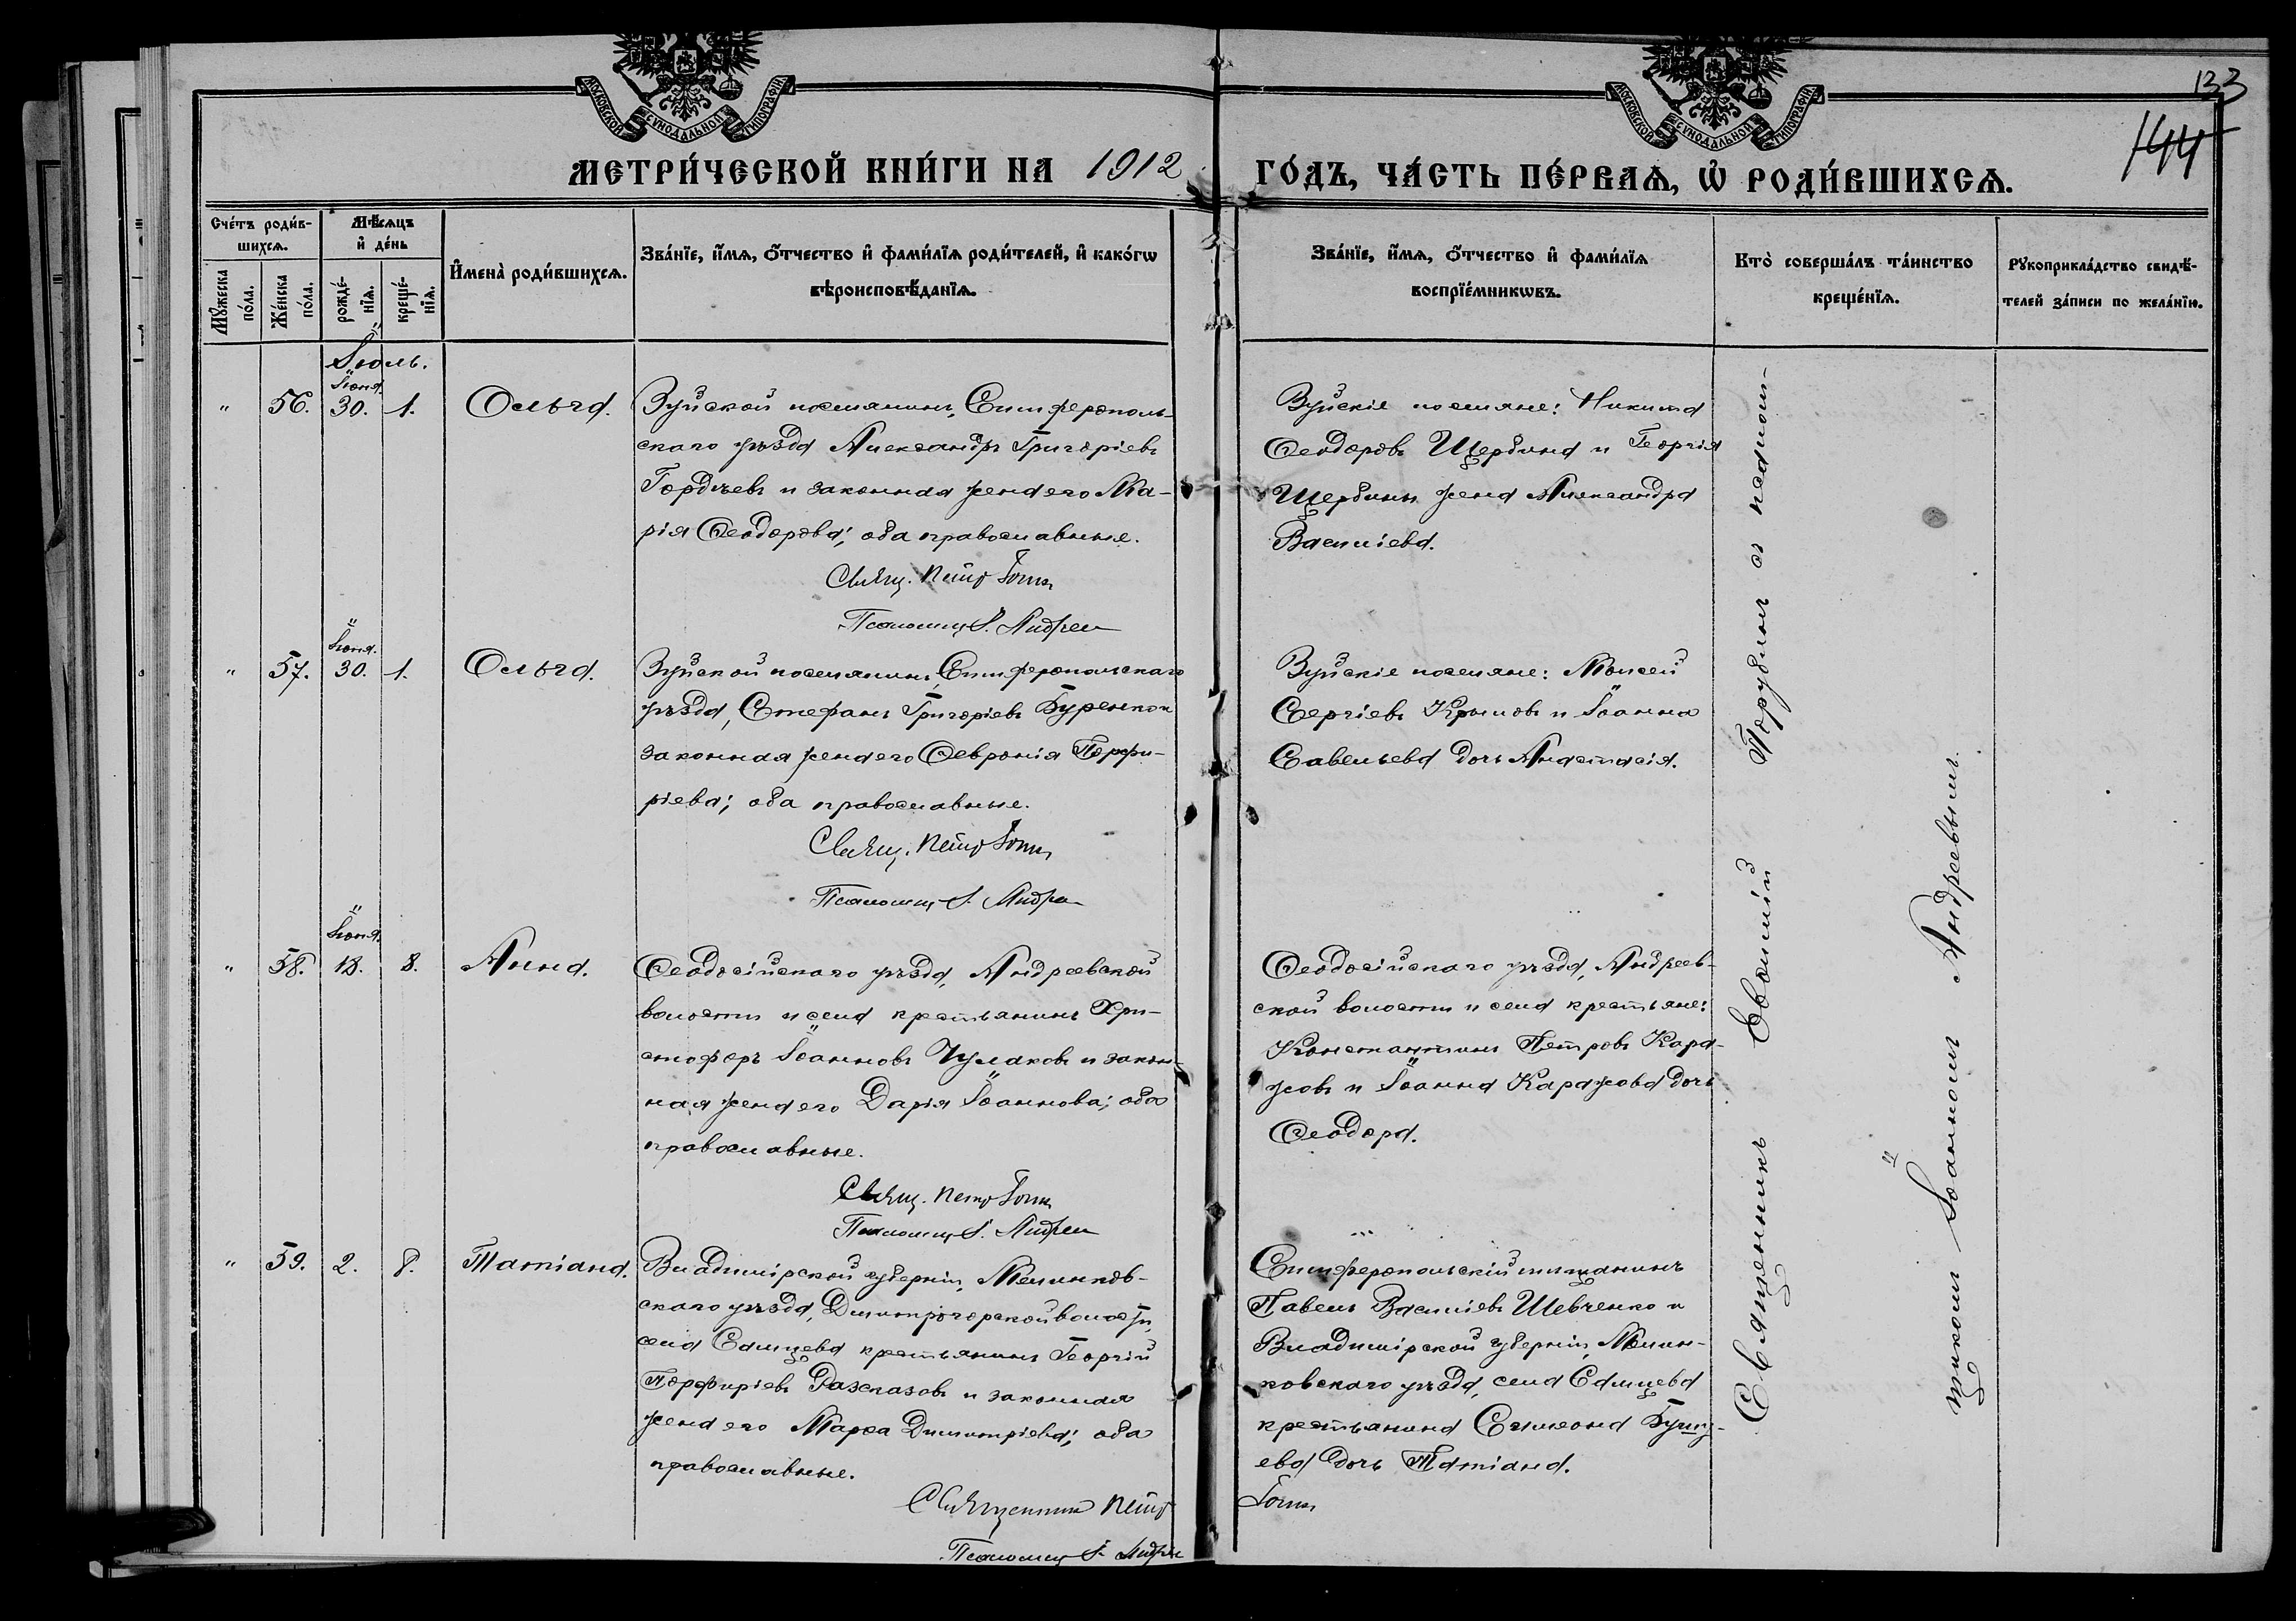 МОСКОВСКОЙ СУНОДАЛЬНОЙ ТИПОГРАФІИ
МОСКОВСКОЙ СУНОДАЛЬНОЙ ТИПОГРАФІИ
133
144
МЕТРИ́ЧЕСКОЙ КНИ́ГИ НА 1912 ГО́ДЪ, ЧА́СТЬ ПЕ́РВАѦ, Ѡ҆ РОДИ́ВШИХСѦ.
Сче́тъ роди́вшихсѧ.
Мꙋ́жеска по́ла.
Же́нска по́ла.
Мѣ́сѧцъ и҆ де́нь
рожде́нїѧ.
креще́нїѧ.
И҆мена̀ роди́вшихсѧ.
Зва́нїе, и҆́мѧ, ѻ҆́тчество и҆ фами́лїѧ роди́телей, и҆ како́гѡ
вѣроисповѣ́данїѧ.
Зва́нїе, и҆́мѧ, ѻ҆́тчество и҆ фами́лїѧ
воспрїе́мникѡвъ.
Кто̀ соверша́лъ та́инство
креще́нїѧ.
Рꙋкоприкла́дство свидѣ́-
телей за́писи по жела́нїю.
Іюль.
" 56. Іюня 30. 1. Ольга.
Зуйской поселянинъ, Симферополь-
скаго уѣзда Александръ Григоріевъ
Гордѣевъ и законная жена его Ма-
рія Ѳеодорова; оба православные.
Свящ. Петръ
Псаломщ. І. Андрее
Зуйскіе поселяне: Никита
Ѳеодоровъ Щербина и Георгія
Щербины жена Александра
Василіева.
" 57. Іюня. 30. 1. Ольга.
Зуйской поселянинъ, Симферопольскаго
уѣзда, Стефанъ Григоріевъ Буренко и
законная жена его Ѳевронія Порфи-
ріева; оба православные.
Свящ. Петръ
Псаломщ. І. Андре
Зуйскіе поселяне: Моисей
Сергіевъ Крымовъ и Іоанна
Савельева дочь Анастасія.
" 58. Іюня. 18. 8. Анна.
Ѳеодосійскаго уѣзда, Андреевской
волости и села крестьянинъ Хри-
стофоръ Іоанновъ Чумаковъ и закон-
ная жена его Дарія Іоаннова; оба
православные.
Свящ. Петръ
Псаломщ. І. Андрее
Ѳеодосійскаго уѣзда, Андреев-
ской волости и села крестьяне:
Константинъ Петровъ Кара-
жовъ и Іоанна Каражова дочь
Ѳеодора.
" 59. 2. 8. Татіана.
Владимірской губерніи, Меленков-
скаго уѣзда, Димитрогорской волости,
села крестьянинъ Георгій
Порфиріевъ Разсказовъ и законная
жена его Марѳа Димитріева; оба
православные.
Священникъ Петръ
Псаломщ. І. Андрее
Симферопольскій мѣщанинъ
Павелъ Василіевъ Шевченко и
Владимірской губерніи, Мелен-
ковскаго уѣзда, села
крестьянина Симеона
ева дочь Татіана.
Священникъ Евѳимій съ псалом-
щикомъ Іоанномъ Андреевымъ.